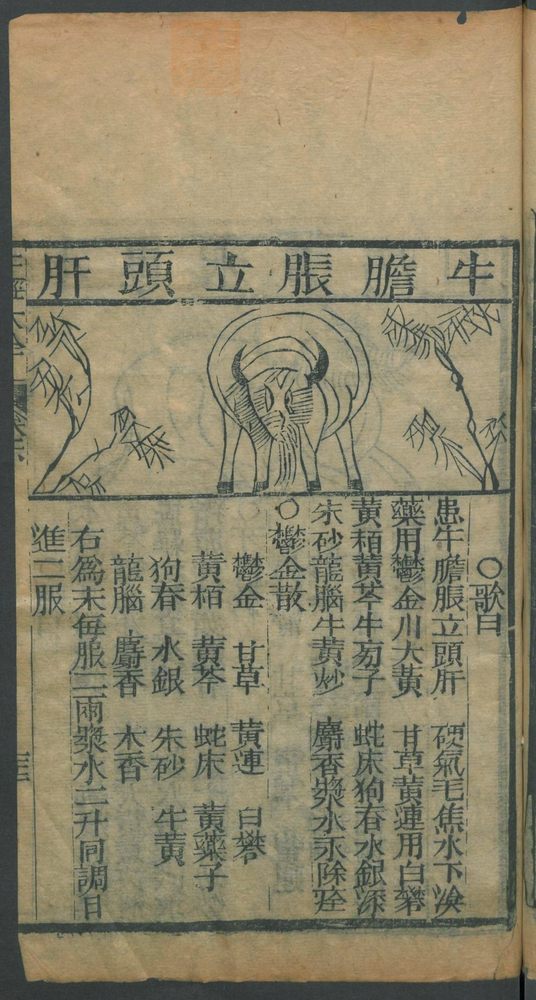 牛膽脹立頭肝
○歌曰
患牛膽脹立頭肝　硬氣毛焦水下淚
藥用鬱金川大黃　甘草黃連用白礬
黃栢黃芩牛蒡子　蛇床狗脊水銀深
朱砂龍腦牛黃炒　麝香漿水永除痊
○鬱金散
鬱金　甘草　黃連　白礬
黃栢　黃芩　蛇床　黃藥子
狗脊　水銀　朱砂　牛黃
龍腦　麝香　木香
右為末每服二兩漿水二升同調日
進二服